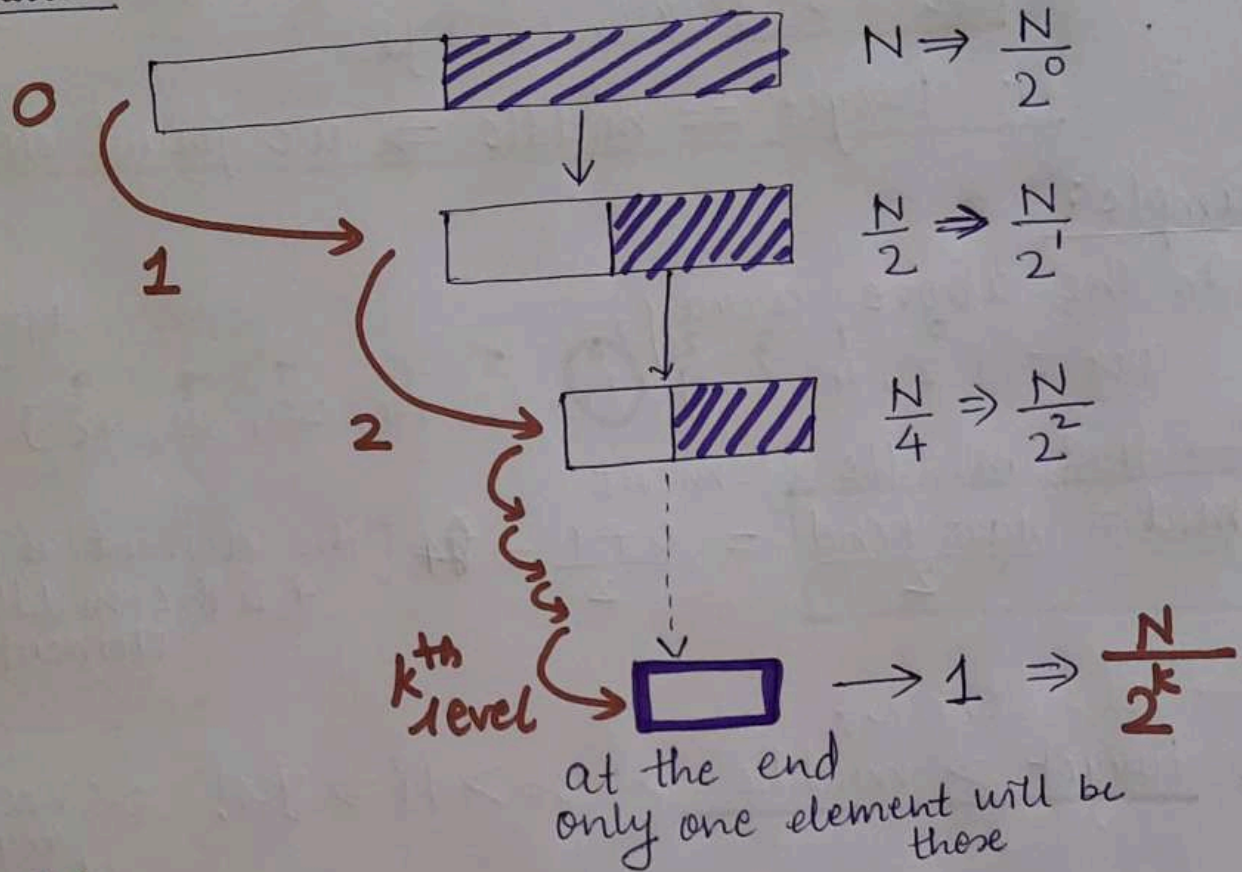 0
N ⇒ N/2^0
1
N/2 ⇒ N/2^1
2
N/4 ⇒ N/2^2
kth
level
→ 1 ⇒ N/2^k
at the end
only one element will be
those